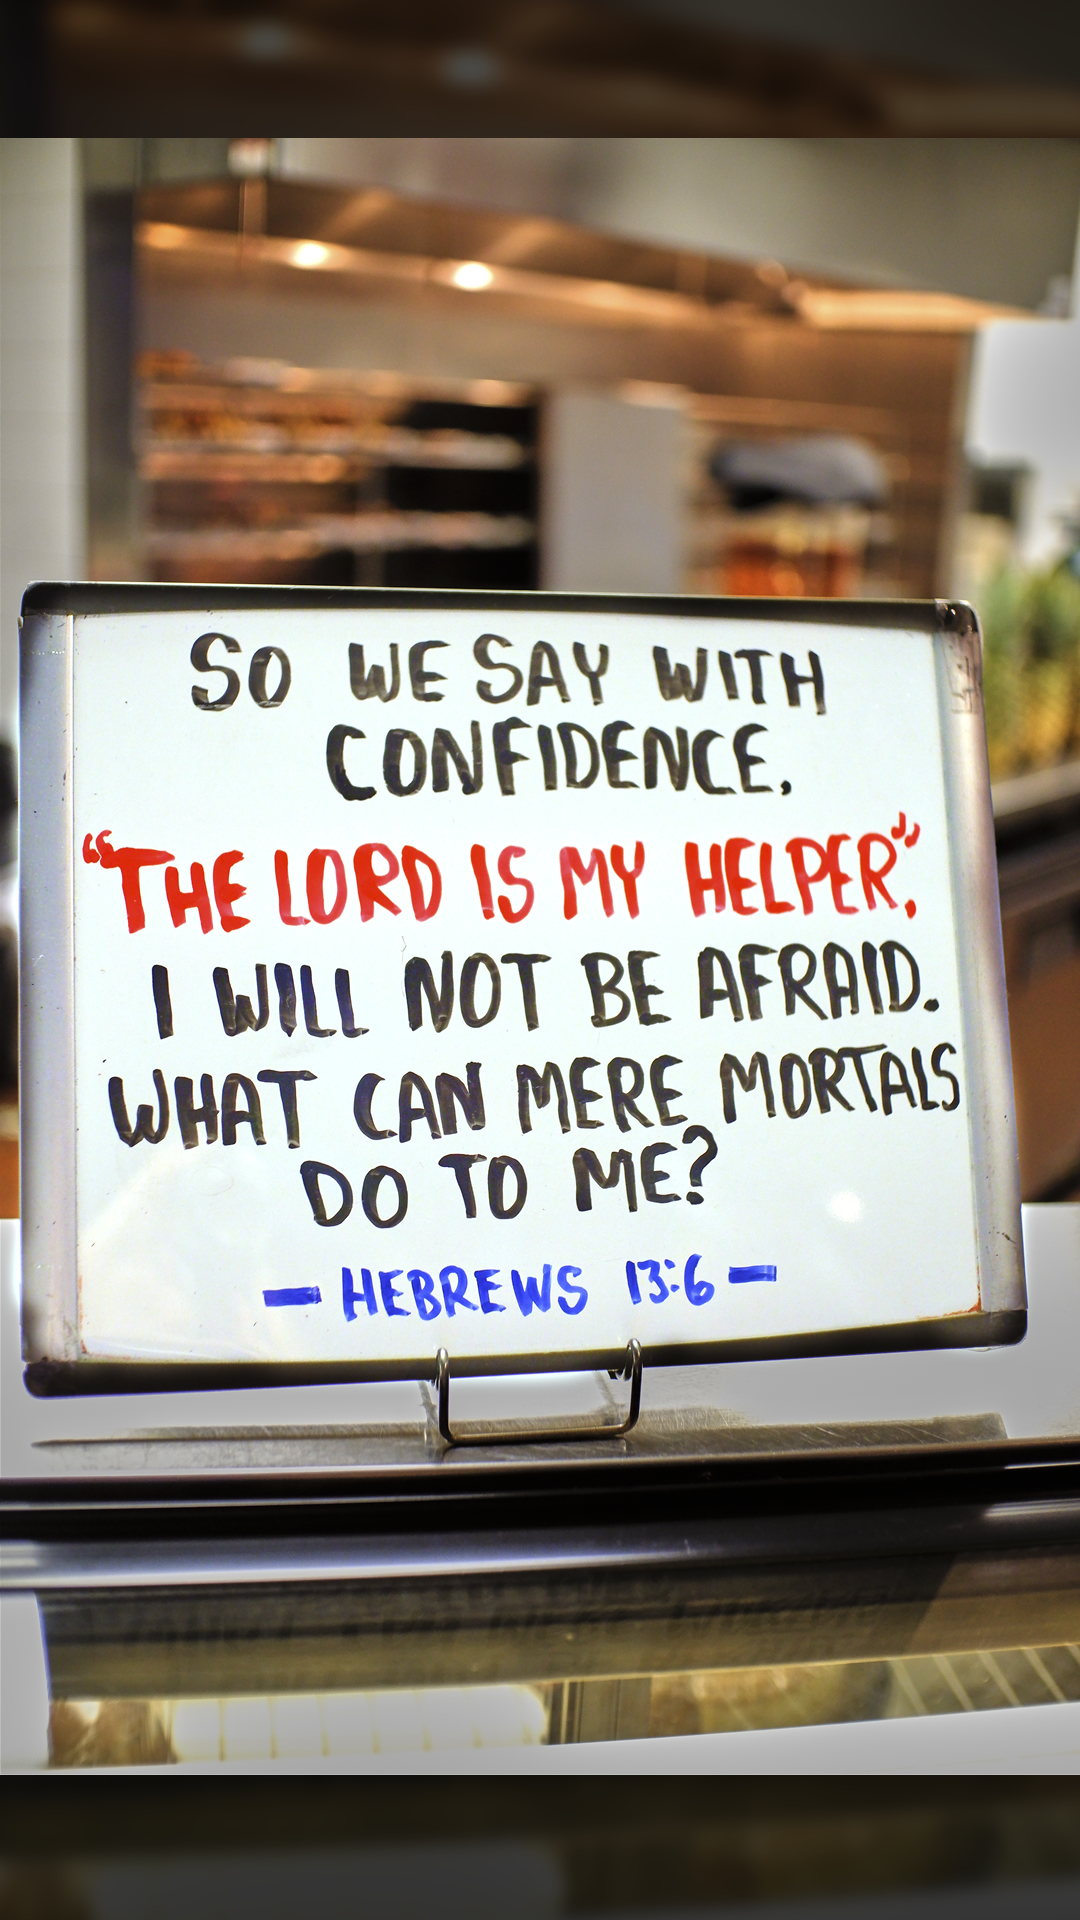 SO WE SAY WITH
CONFIDENCE,
“THE LORD IS MY HELPER”,
I WILL NOT BE AFRAID.
WHAT CAN MERE MORTALS
DO TO ME?
— HEBREWS 13:6 —